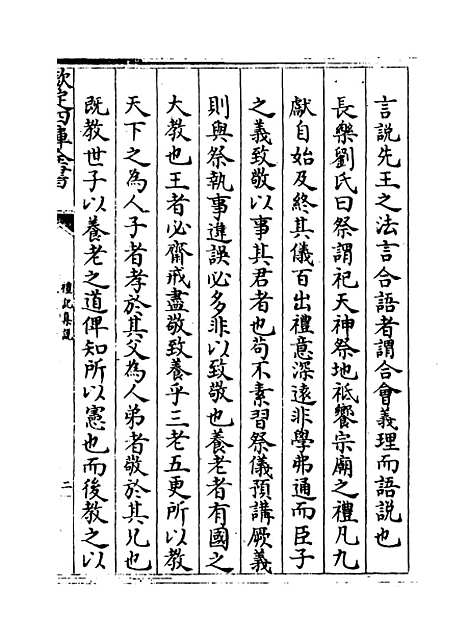 言說先王之法言合語者謂合會義理而語說也
長樂劉氏曰祭謂祀天神祭地祇饗宗廟之禮凡九
獻自始及終其儀百出禮意深遠非學弗通而臣子
之義致敬以事其君者也苟不素習祭儀預講厥義
則與祭執事違誤必多非以致敬也養老者有國之
大教也王者必齋戒盡敬致養乎三老五更所以教
天下之為人子者孝於其父為人弟者敬於其兄也
既教世子以養老之道俾知所以憲也而後教之以
欽定四庫全書
禮記集說
二